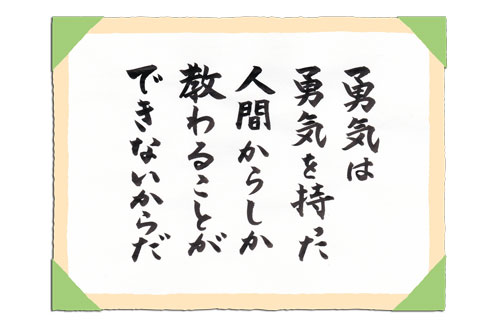 勇気は
勇気を持った
人間からしか
教わることが
できないからだ